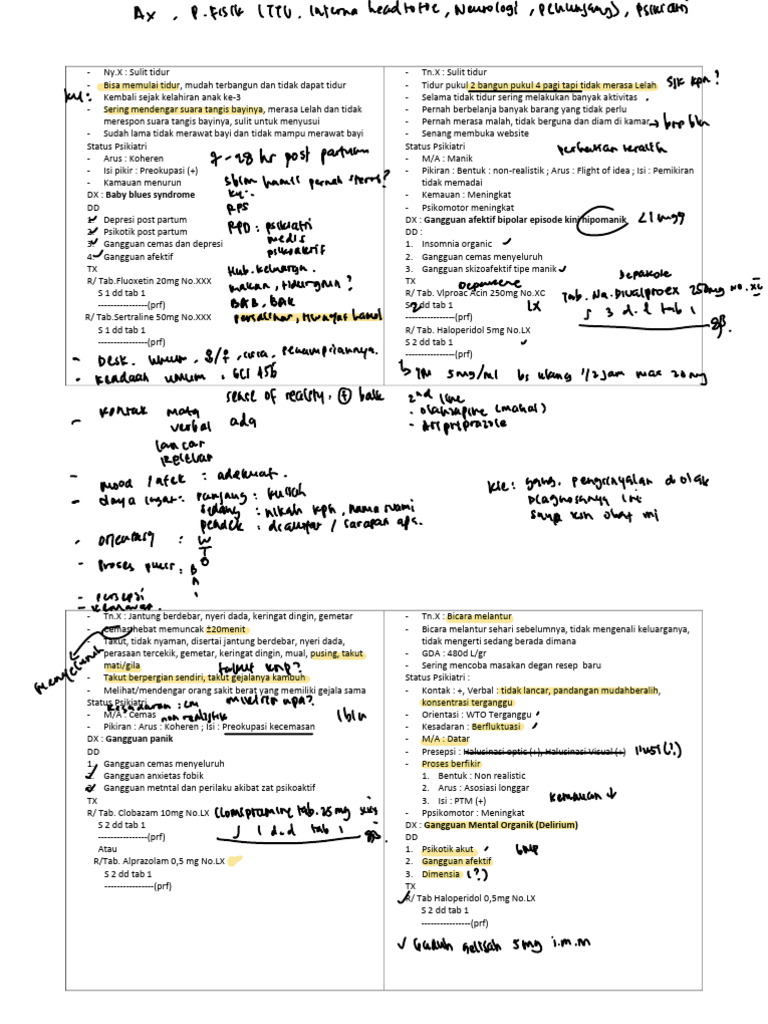 Ax, P. Fisik (TTV, Interna head to toe, Neurologi, penunjang), psikiatri
- Ny.X : Sulit tidur
- Bisa memulai tidur, mudah terbangun dan tidak dapat tidur
- Kembali sejak kelahiran anak ke-3
- Sering mendengar suara tangis bayinya, merasa Lelah dan tidak
merespon suara tangis bayinya, sulit untuk menyusui
- Sudah lama tidak merawat bayi dan tidak mampu merawat bayi
Status Psikiatri
- Arus : Koheren
- Isi pikir : Preokupasi (+)
- Kamauan menurun
DX : Baby blues syndrome
DD
1. Depresi post partum
2. Psikotik post partum
3. Gangguan cemas dan depresi
4. Gangguan afektif
TX
R/ Tab.Fluoxetin 20mg No.XXX
S 1 dd tab 1
------------------(prf)
R/ Tab.Sertraline 50mg No.XXX
S 1 dd tab 1
------------------(prf)
7-28 hr post partum
RPS
RPD : psikiatri
medis
Hub. keluarga.
BAB, BAK
- Tn.X : Sulit tidur
- Tidur pukul 2 bangun pukul 4 pagi tapi tidak merasa Lelah
- Selama tidak tidur sering melakukan banyak aktivitas
- Pernah berbelanja banyak barang yang tidak perlu
- Pernah merasa malah, tidak berguna dan diam di kamar
- Senang membuka website
Status Psikiatri
- M/A : Manik
- Pikiran : Bentuk : non-realistik ; Arus : Flight of idea ; Isi : Pemikiran
tidak memadai
- Kemauan : Meningkat
- Psikomotor meningkat
DX : Gangguan afektif bipolar episode kini hipomanik
DD :
1. Insomnia organic
2. Gangguan cemas menyeluruh
3. Gangguan skizoafektif tipe manik
TX
R/ Tab. Vlproac Acin 250mg No.XC
S 2 dd tab 1
------------------(prf)
R/ Tab. Haloperidol 5mg No.LX
S 2 dd tab 1
------------------(prf)
<1 mgg
LX
Tab. Na. Divalproex 250mg No. XC
S 3 d.d tab 1
IM 5mg/ml bs ulang 1/2 jam max 20mg
2nd line
- olanzapine (mahal)
- Aripiprazole
- Keadaan umum : GCS 456
sense of reality,
- Kontak mata
verbal ada
lancar
relevan
- mood / afek : adekuat.
- daya ingat : panjang : kuliah
sedang : nikah kpn, nama suami
pendek :
- orientasi : W
T
O
- Proses pikir : B
A
I
- persepsi
- kemauan
- Tn.X : Jantung berdebar, nyeri dada, keringat dingin, gemetar
- Cemas hebat memuncak ±20menit
- Takut, tidak nyaman, disertai jantung berdebar, nyeri dada,
perasaan tercekik, gemetar, keringat dingin, mual, pusing, takut
mati/gila
- Takut berpergian sendiri, takut gejalanya kambuh
- Melihat/mendengar orang sakit berat yang memiliki gejala sama
Status Psikiatri
- M/A : Cemas
- Pikiran : Arus : Koheren ; Isi : Preokupasi kecemasan
DX : Gangguan panik
DD
1. Gangguan cemas menyeluruh
2. Gangguan anxietas fobik
3. Gangguan metntal dan perilaku akibat zat psikoaktif
TX
R/ Tab. Clobazam 10mg No.LX
S 2 dd tab 1
------------------(prf)
Atau
R/Tab. Alprazolam 0,5 mg No.LX
S 2 dd tab 1
------------------(prf)
menyeluruh
takut knp?
non realistik
1 bln
Clomipramine tab. 25 mg
S 1 d.d tab 1
- Tn.X : Bicara melantur
- Bicara melantur sehari sebelumnya, tidak mengenali keluarganya,
tidak mengerti sedang berada dimana
- GDA : 480d L/gr
- Sering mencoba masakan degan resep baru
Status Psikiatri :
- Kontak : +, Verbal : tidak lancar, pandangan mudahberalih,
konsentrasi terganggu
- Orientasi : WTO Terganggu
- Kesadaran : Berfluktuasi
- M/A : Datar
- Presepsi : Halusinasi optis (+), Halusinasi Visual (+) ilusi (?)
- Proses berfikir
1. Bentuk : Non realistic
2. Arus : Asosiasi longgar
3. Isi : PTM (+)
kemauan ↓
- Ppsikomotor : Meningkat
DX : Gangguan Mental Organik (Delirium)
DD
1. Psikotik akut
2. Gangguan afektif
3. Dimensia (?)
TX
R/ Tab Haloperidol 0,5mg No.LX
S 2 dd tab 1
------------------(prf)
✓ Gaduh gelisah 5mg i.m.m